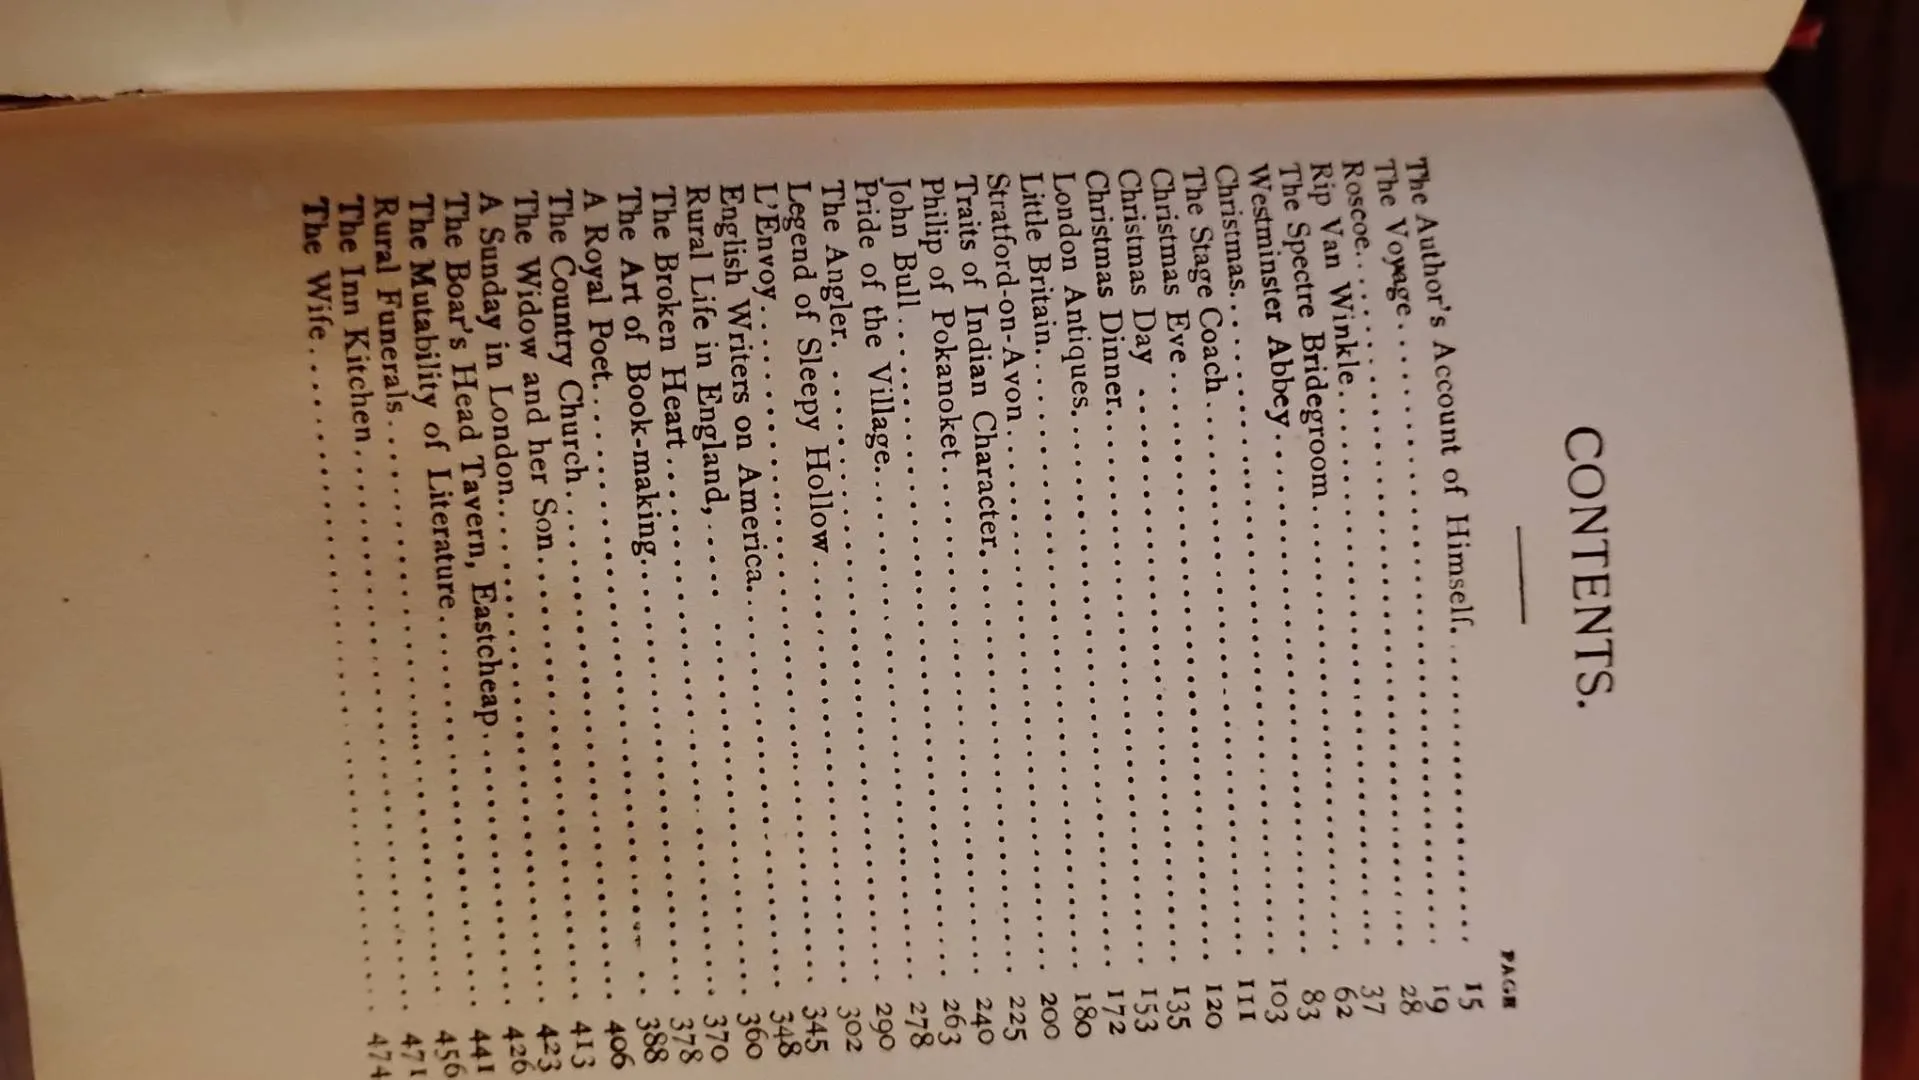 CONTENTS.
PAGE
The Author's Account of Himself. 15
The Voyage 19
Roscoe 28
Rip Van Winkle 37
The Spectre Bridegroom 62
Westminster Abbey 83
Christmas 103
The Stage Coach 111
Christmas Eve 120
Christmas Day 135
Christmas Dinner 153
London Antiques 172
Little Britain 180
Stratford-on-Avon 200
Traits of Indian Character 225
Philip of Pokanoket 240
John Bull 263
Pride of the Village 278
The Angler 290
Legend of Sleepy Hollow 302
L'Envoy 345
English Writers on America 348
Rural Life in England, 360
The Broken Heart 370
The Art of Book-making 378
A Royal Poet 388
The Country Church 406
The Widow and her Son 413
A Sunday in London 423
The Boar's Head Tavern, Eastcheap 426
The Mutability of Literature 441
Rural Funerals 456
The Inn Kitchen 471
The Wife 474